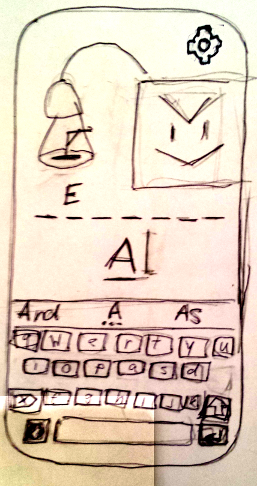 E
A
And A As
q w e r t y u
i o p a s d